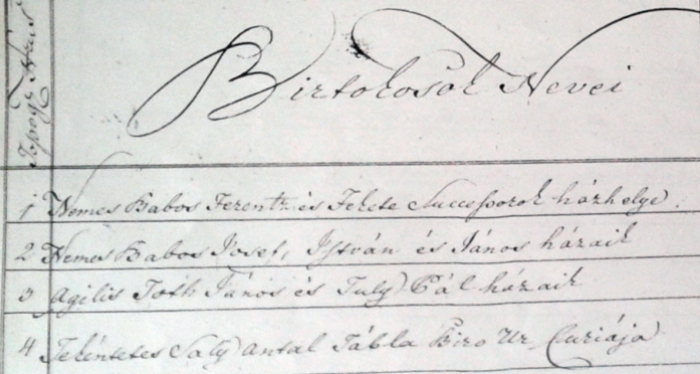 Topogr Nrus
Birtokosok Nevei
1 Nemes Babos Ferentz és Fekete Successorok házhelye.
2 Nemes Babos Josef, István és János házaik
3 Agilis Tóth János és Pál házaik
4 Tekéntetes Antal Tábla Biro Ur Curiája